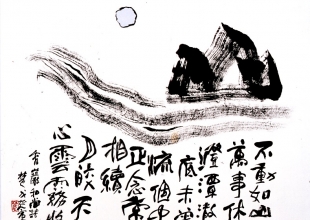 不動如山
萬事休
澄潭澈
底未曾
流個中
正念常
相續
月皎天
心雲霧收